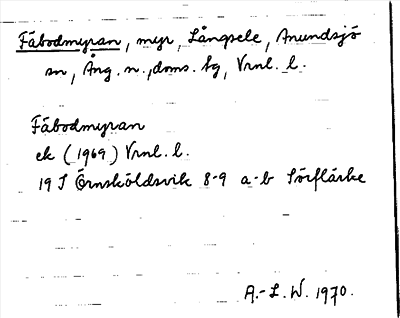 Fäbodmyran, myr, Långsele, Anundsjö
sn, Ång. n., doms. sg, Vrnl. l.
Fäbodmyran
ek (1969) Vrnl. l.
19 J Örnsköldsvik 8-9 a-b Sörflärke
A.-L. W. 1970.